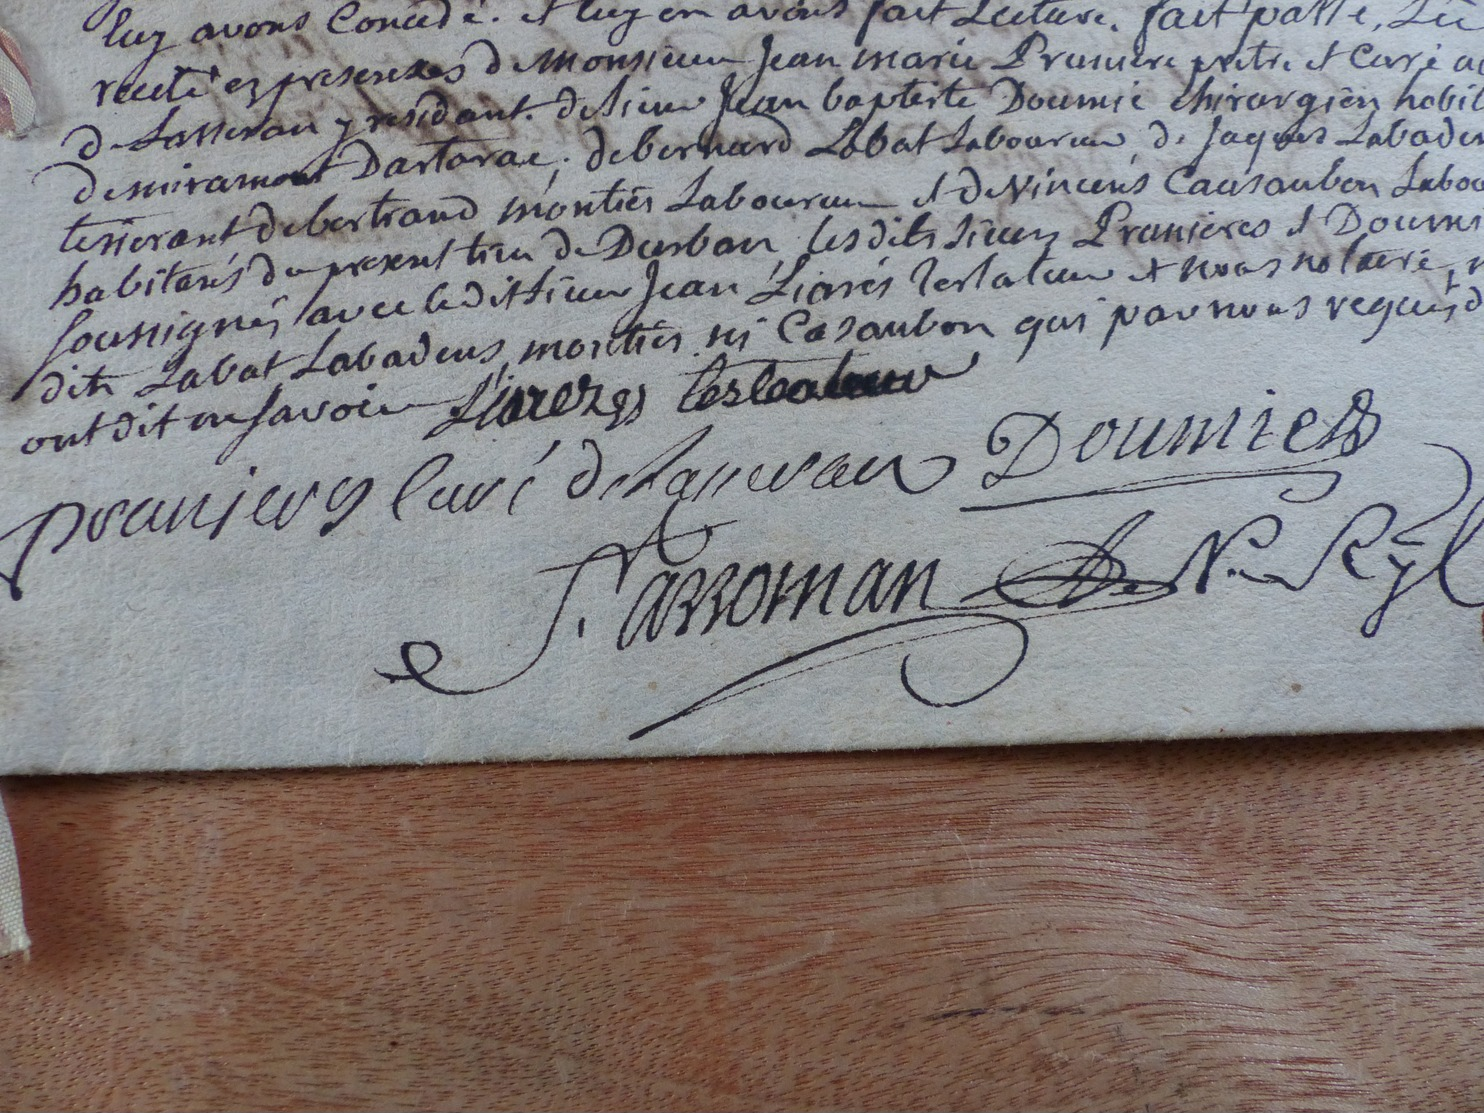 luy avons Concedé. et luy en avons fait Lecture. fait passé, Lû
recité ez presences de monsieur Jean marie Pruniere pretre et Curé
de Lasseran y residant. de sieur Jean baptiste Doumie chirurgien habit
de miramont Dastarac, de bernard Labat Laboureur, de Jaques Labaden
tisserant de bertrand montiés Laboureur et de Vincens Causaubon Labou
habitans du present lieu de Durban, les dits sieurs Prunieres et Doumi
soussignés avec le dit sieur Jean Liarés testateur et nous notaire,
dits Labat Labadens, montiés ni Casaubon qui par nous requis
ont dit ne savoir Liarezgs testateur
pruniers Curé de Lasseran Doumiets
S. Larroman N. R.